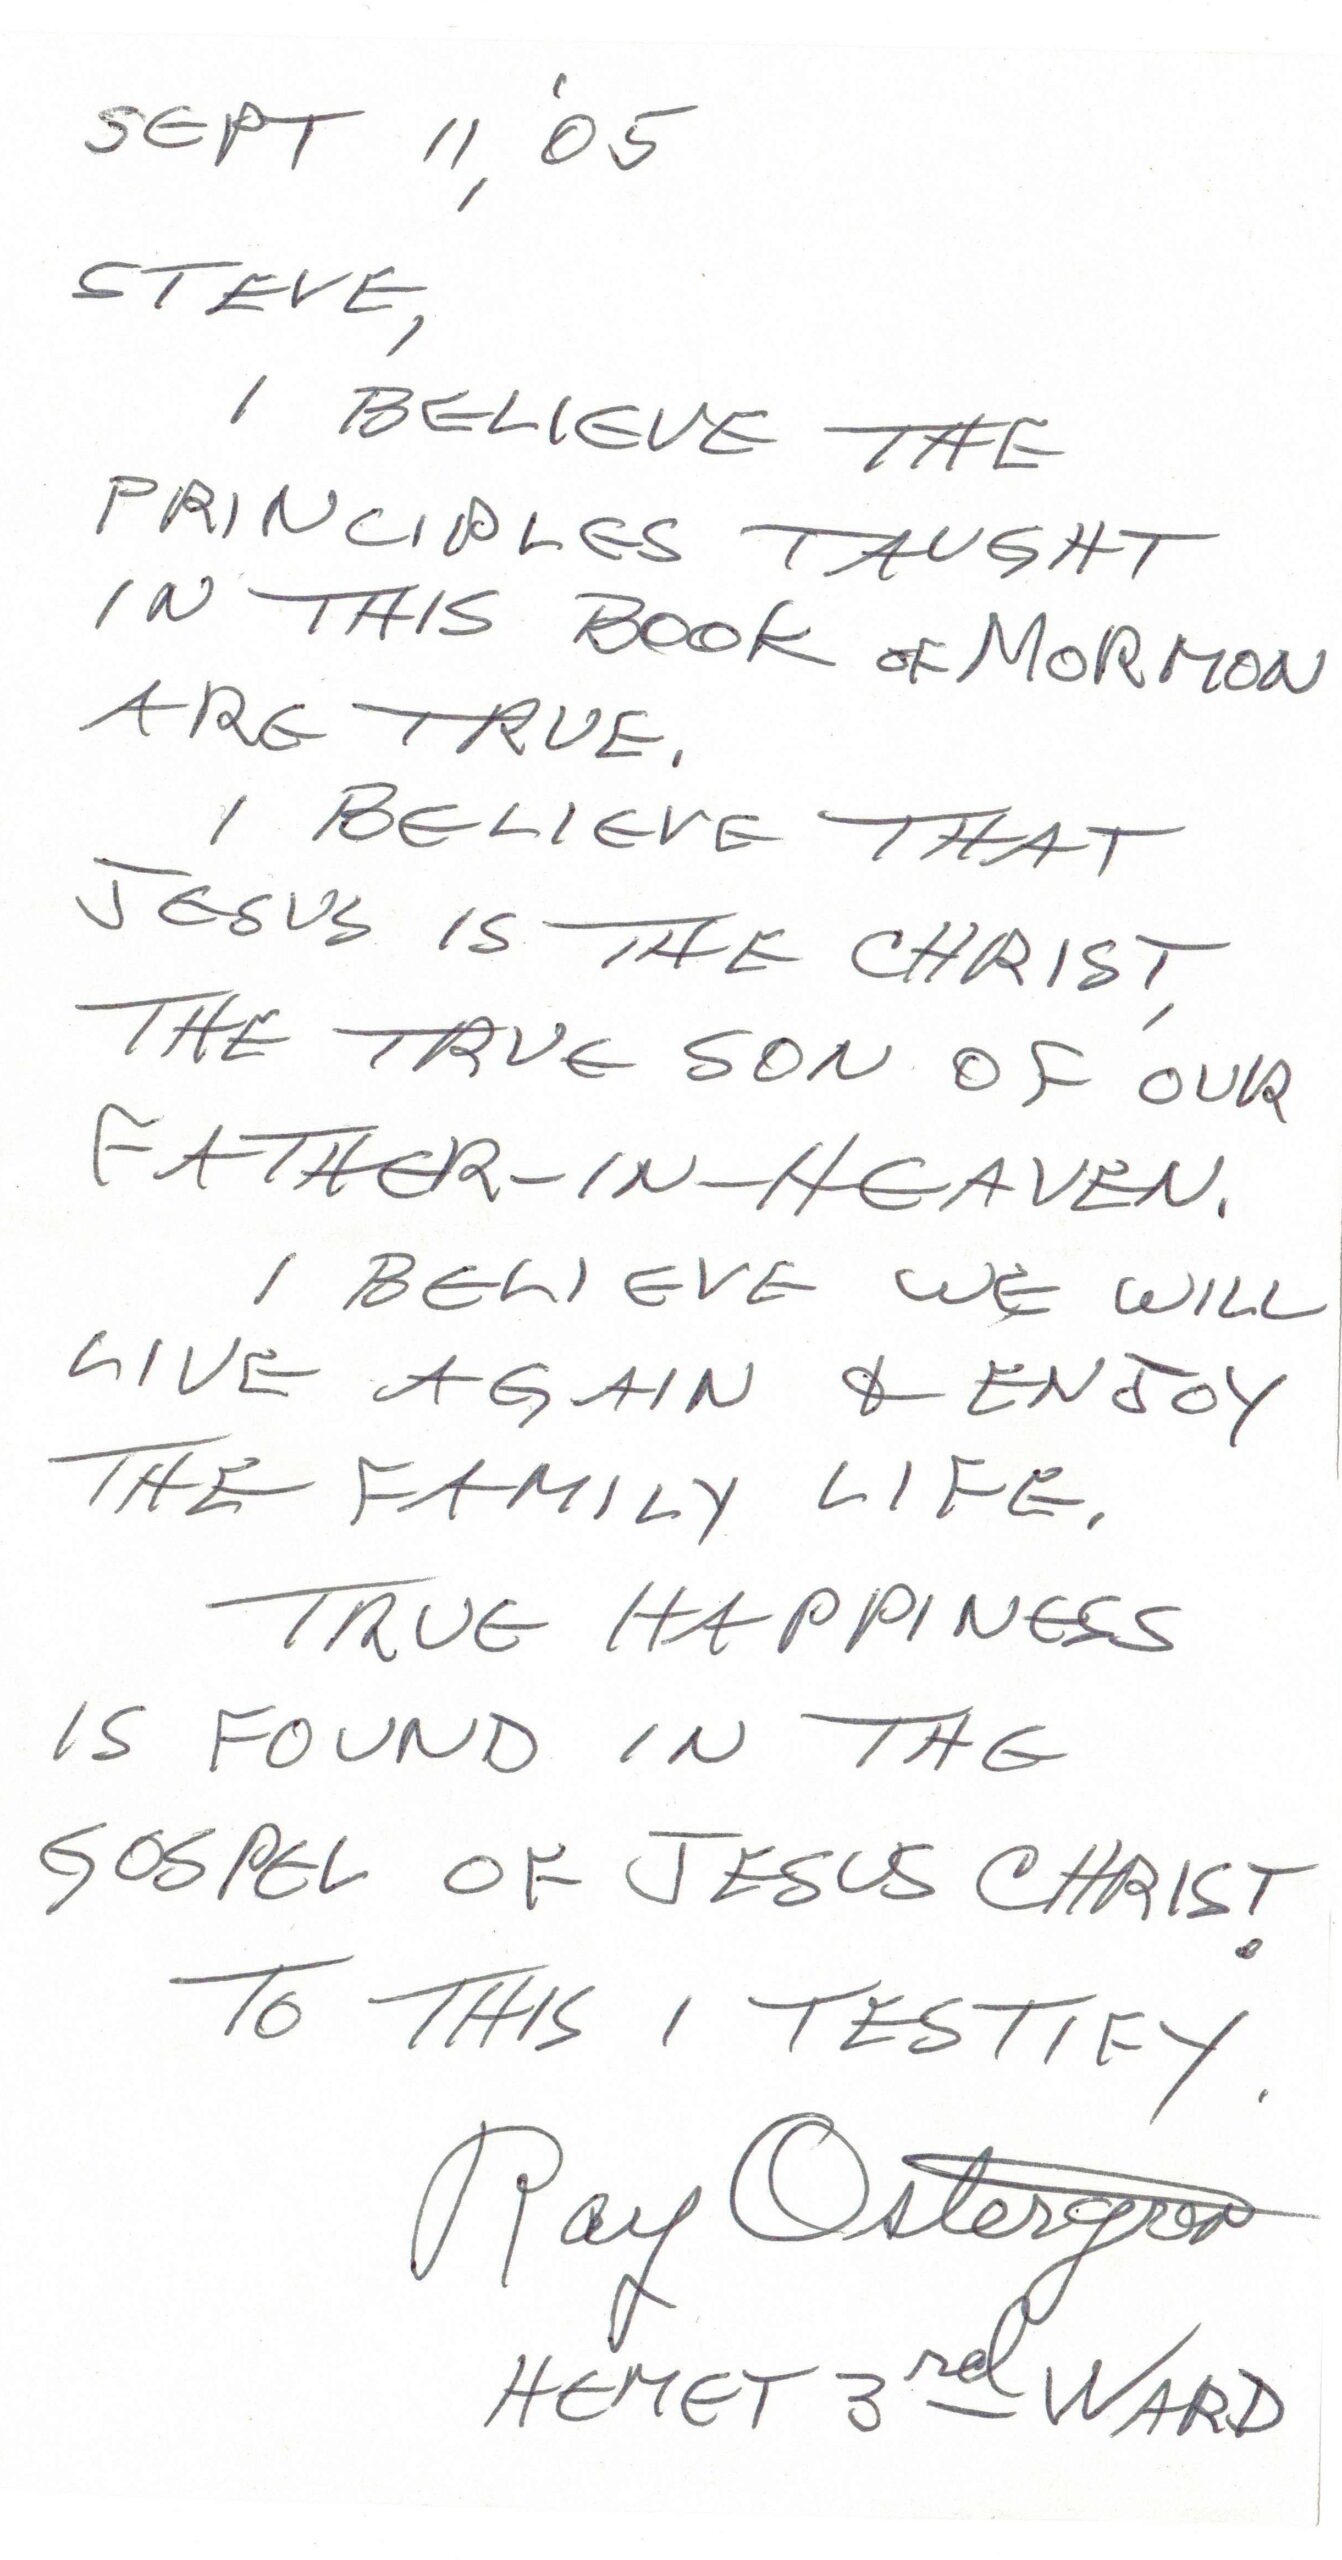 SEPT 11, '05
STEVE,
I BELIEVE THE
PRINCIPLES TAUGHT
IN THIS BOOK OF MORMON
ARE TRUE.
I BELIEVE THAT
JESUS IS THE CHRIST,
THE TRUE SON OF OUR
FATHER-IN-HEAVEN.
I BELIEVE WE WILL
LIVE AGAIN & ENJOY
THE FAMILY LIFE.
TRUE HAPPINESS
IS FOUND IN THE
GOSPEL OF JESUS CHRIST.
TO THIS I TESTIFY.
Ray Ostergren
HEMET 3rd WARD